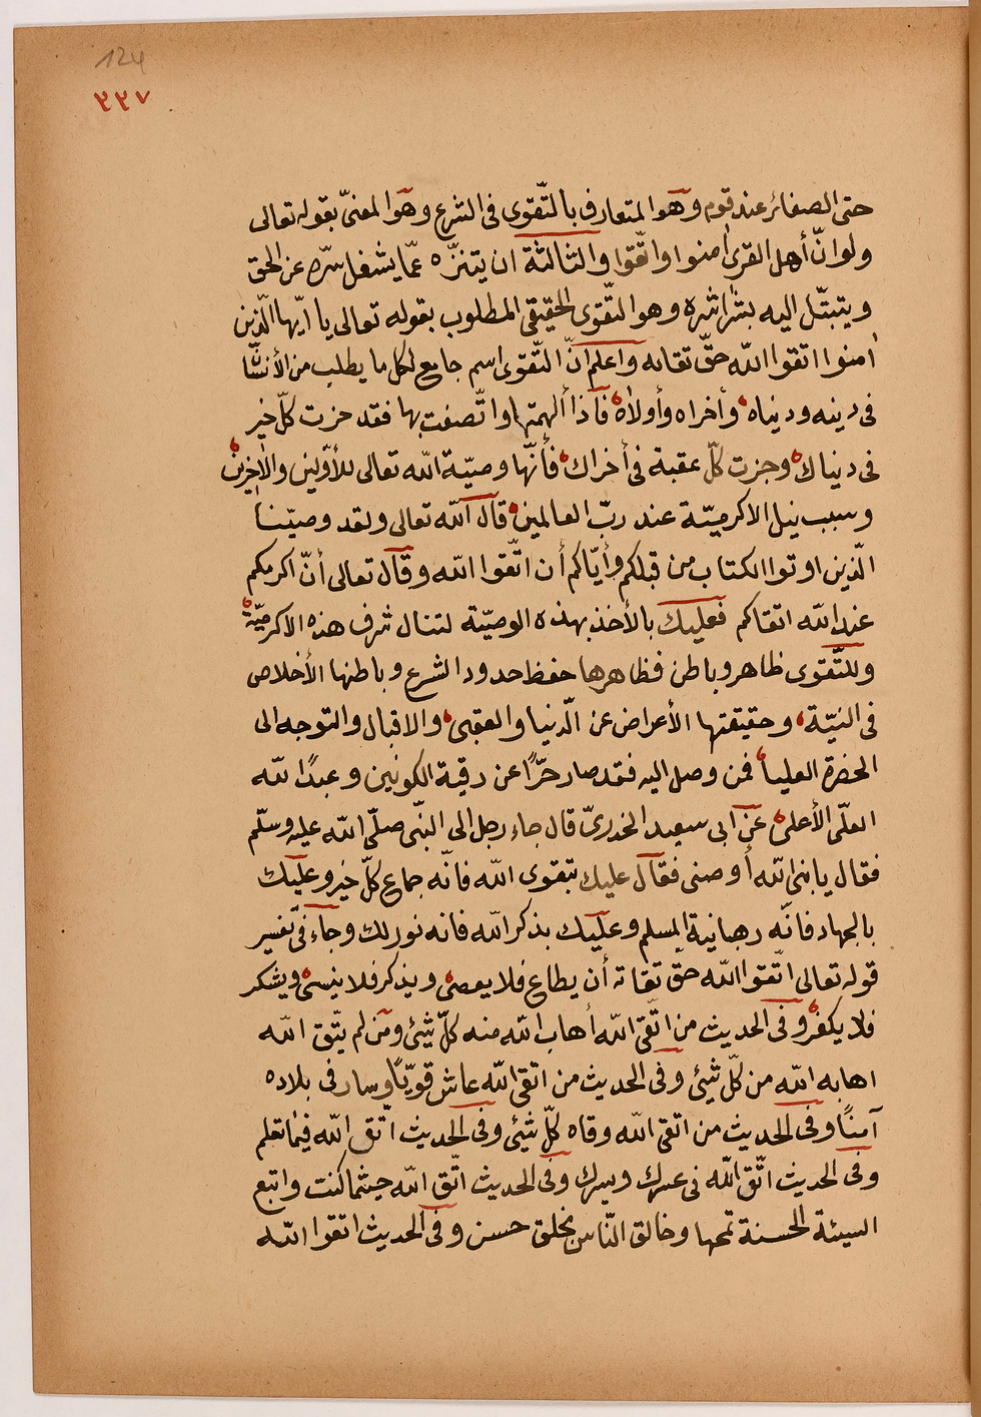 124
٣٣٧
حتى الصغائر عند قوم وهو المتعارف بالتّقوى فى الشرع وهو المعنىّ بقوله تعالى
ولو انّ أهل القرى اٰمنوا واتّقوا والثالثة ان يتنزّه عمّا يشغل سرّه عن الحق
ويتبتّل اليه بشراشره وهو التّقوى الحقيقى المطلوب بقوله تعالى يا ايّها الّذين
اٰمنوا اتقوا اللّه حقّ تقاته واعلم انّ التّقوى اسم جامع لكل ما يطلب من الأنسٰا
فى دينه ودنياه وأخراه وأولاه فاذا ألهمتها واتّصفت بها فقد حزت كلّ خير
فى دنياك وجزت كلّ عقبة فى أخراك فأنّها وصيّة اللّه تعالى للأوّلين والاٰخرين
وسبب نيل الاكرميّة عند ربّ العالمين قال اللّه تعالى ولقد وصيّنا
الّذين اوتوا الكتاب من قبلكم وأيّاكم أن اتّقوا اللّه وقال تعالى أنّ اكرمكم
عند اللّه اتقاكم فعليك بالأخذ بهذه الوصيّة لتنال شرف هذه الاكرميّة
وللتّقوى ظاهر وباطن فظاهرها حفظ حدود الشرع وباطنها الأخلاص
فى النيّة وحقيقتها الأعراض عن الّدنيا والعقبى والاقبال والتوجه الى
الحضرة العليا فمن وصل اليه فقد صار حرّاً عن رقية الكونين وعبدًا للّه
العلّى الأعلى عن ابى سعيد الخدرىّ قال جاء رجل الى النبّى صلّى اللّه عليه وسلّم
فقال يا نبى اللّه أوصنى فقال عليك بتقوى اللّه فانّه جماع كلّ خير وعليك
بالجهاد فانّه رهبانية المسلم وعليك بذكر اللّه فانه نور لك وجاء فى تفسير
قوله تعالى اتّقوا اللّه حقّ تقاته أن يطاع فلا يعصى ويذكر فلا ينسى ويشكر
فلا يكفر وفى الحديث من اتّقى اللّه أهاب اللّه منه كلّ شيئ ومن لم يتّق اللّه
اهابه اللّه من كلّ شيئ وفى الحديث من اتقى اللّه عاش قويّاً وسار فى بلاده
آمنًا وفى الحديث من اتقى اللّه وقاه كلّ شيئ وفى الحديث اتّق اللّه فيما تعلم
وفى الحديث اتّق اللّه فى عسرك ويسرك وفى الحديث اتّق اللّه حيثما كنت واتبع
السيئة الحسنة تمحها وخالق النّاس بخلق حسن وفى الحديث اتقوا اللّه